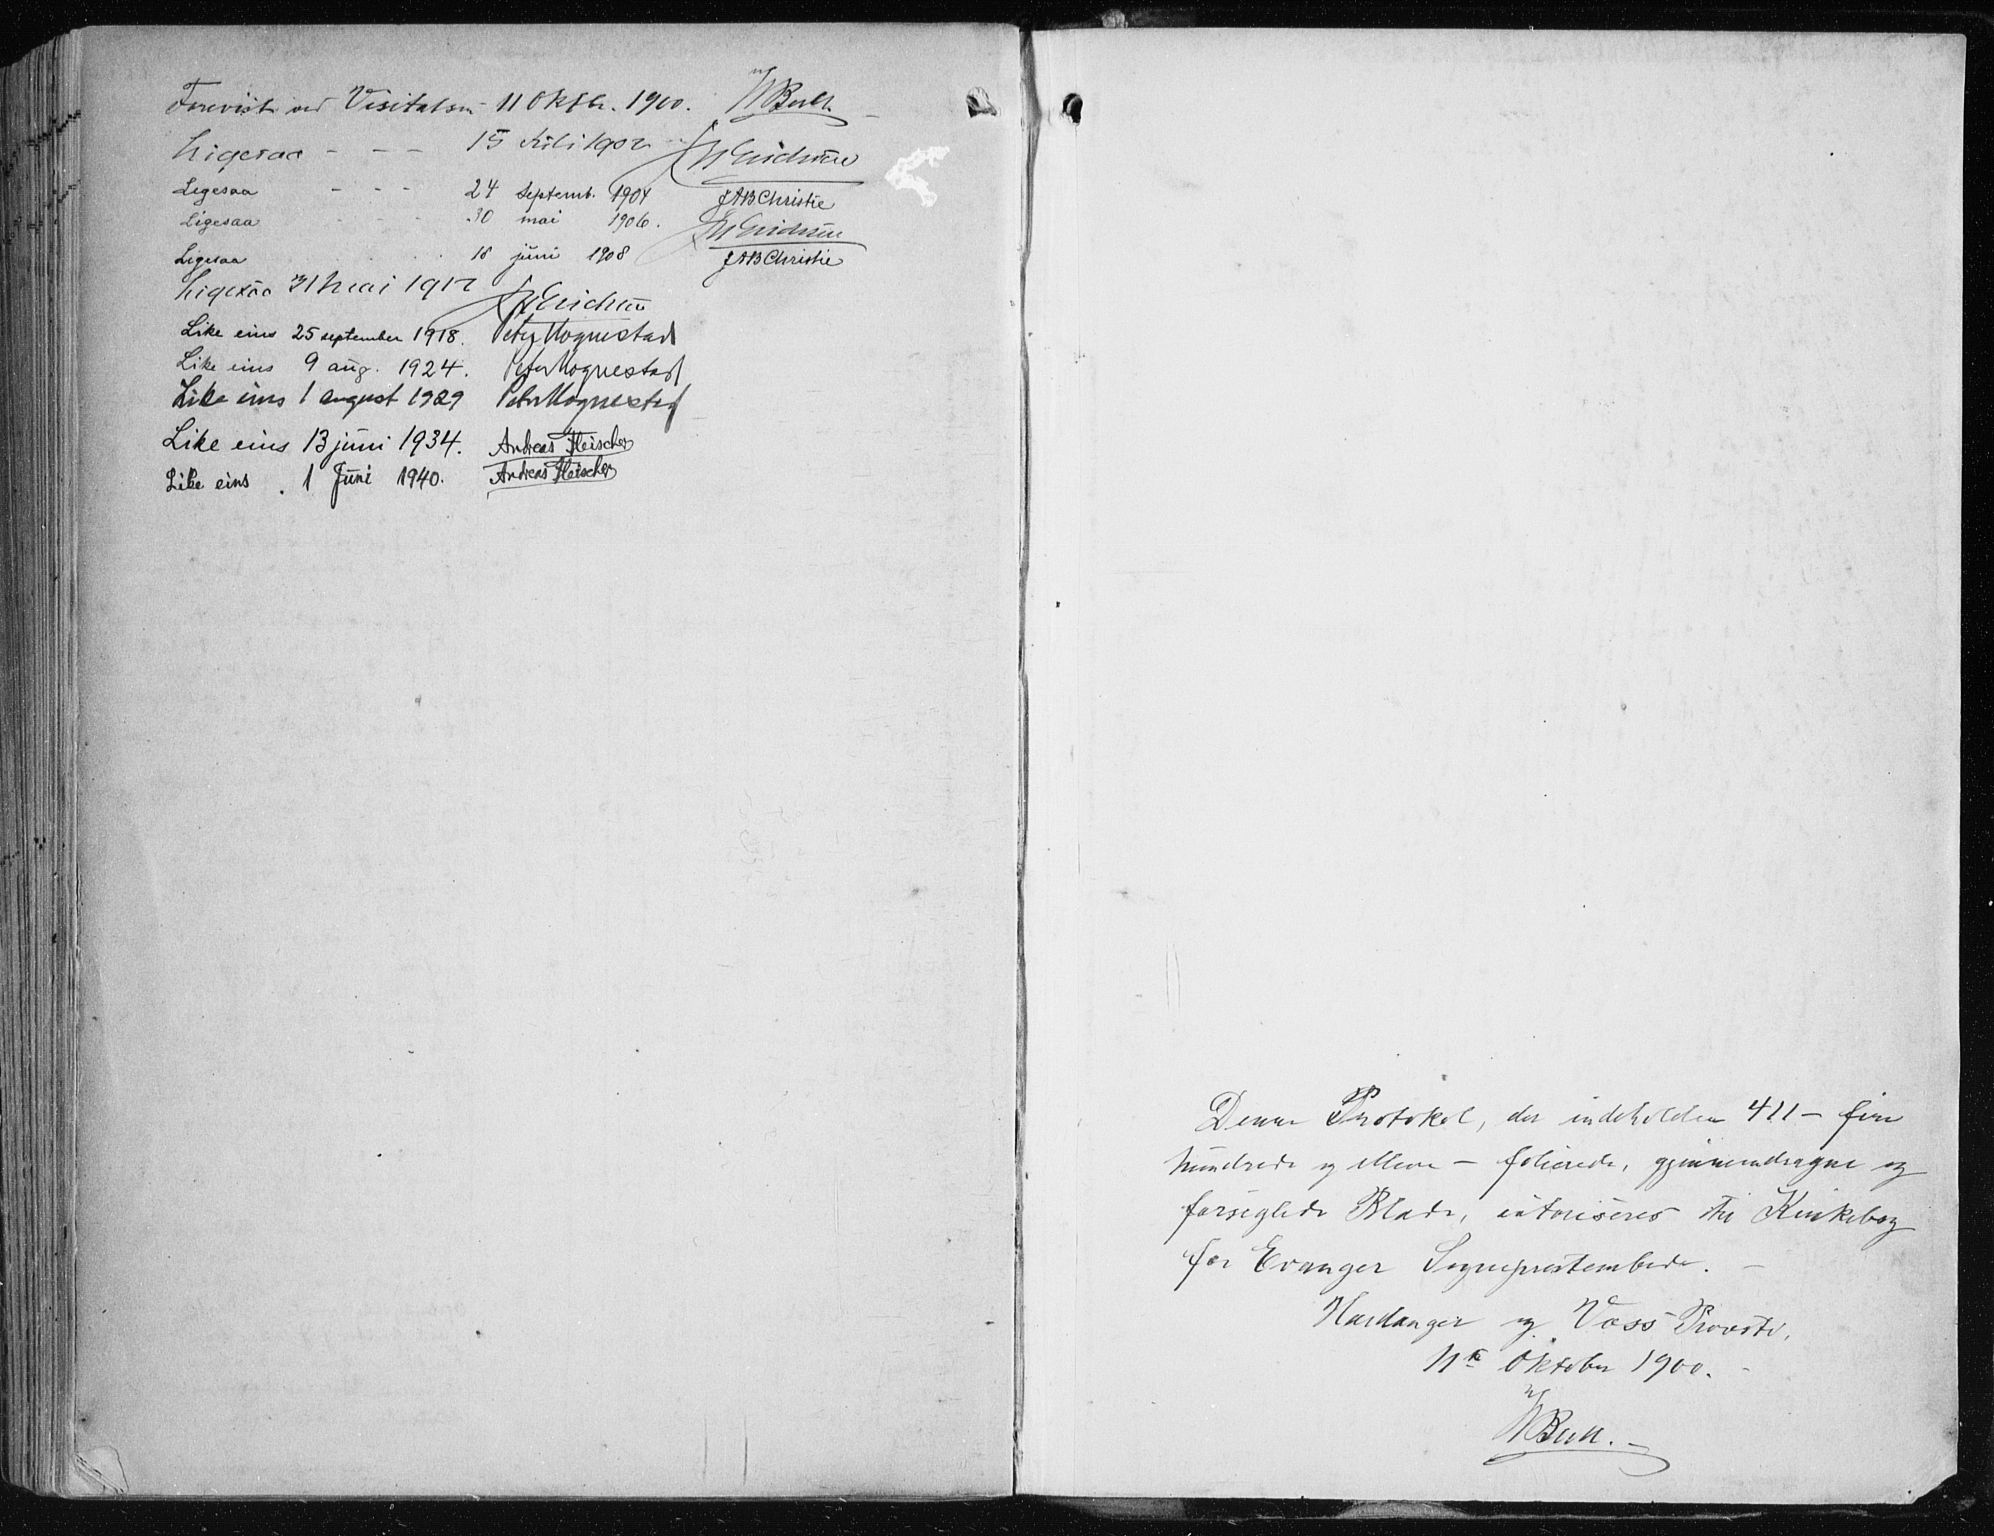 Forevist ved Visitatsen 11 Oktbr. 1900. Bull.
Ligesaa - - - 15 Juli 1902 Erichsen
Ligesaa - - - 24 septemb. 1904 JAB Christie
Ligesaa - - - 30 mai 1906. Erichsen
Ligesaa 18 juni 1908 JAB Christie
Ligesaa 31 Mai 1912 Erichsen
Like eins 25 september 1918. Peter Hognestad
Like eins 9 aug. 1924. Peter Hognestad
Like eins 1 august 1929 Peter Hognestad
Like eins 13 juni 1934. Andreas Fleischer
Like eins . 1 Juni 1940. Andreas Fleischer
Denne Protokol, der indeholder 411 - fire
hundrede og elleve - folierede, gjennemdragne og
forseglede Blade, autoriseres til Kirkebog
for Evanger Sogneprestembede. -
Hardanger og Voss Provsti,
11te Oktober 1900. -
Bull. -